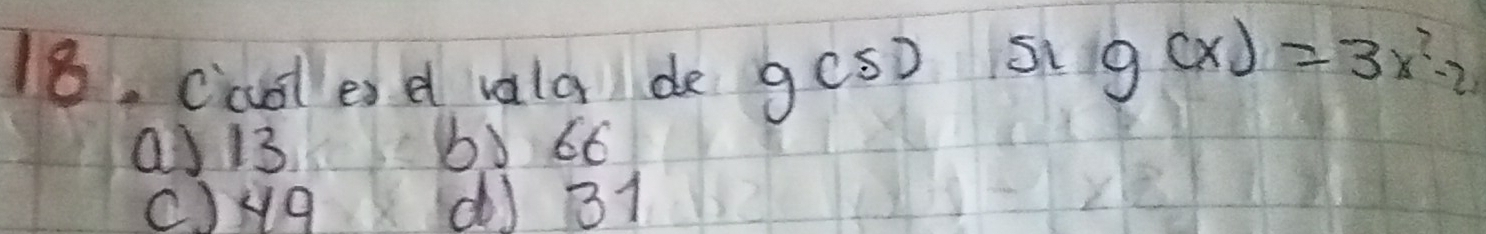 18. Cual es el vala de g(5) si g(x) = 3x²-2
a) 13 b) 66
c) 49 d) 31